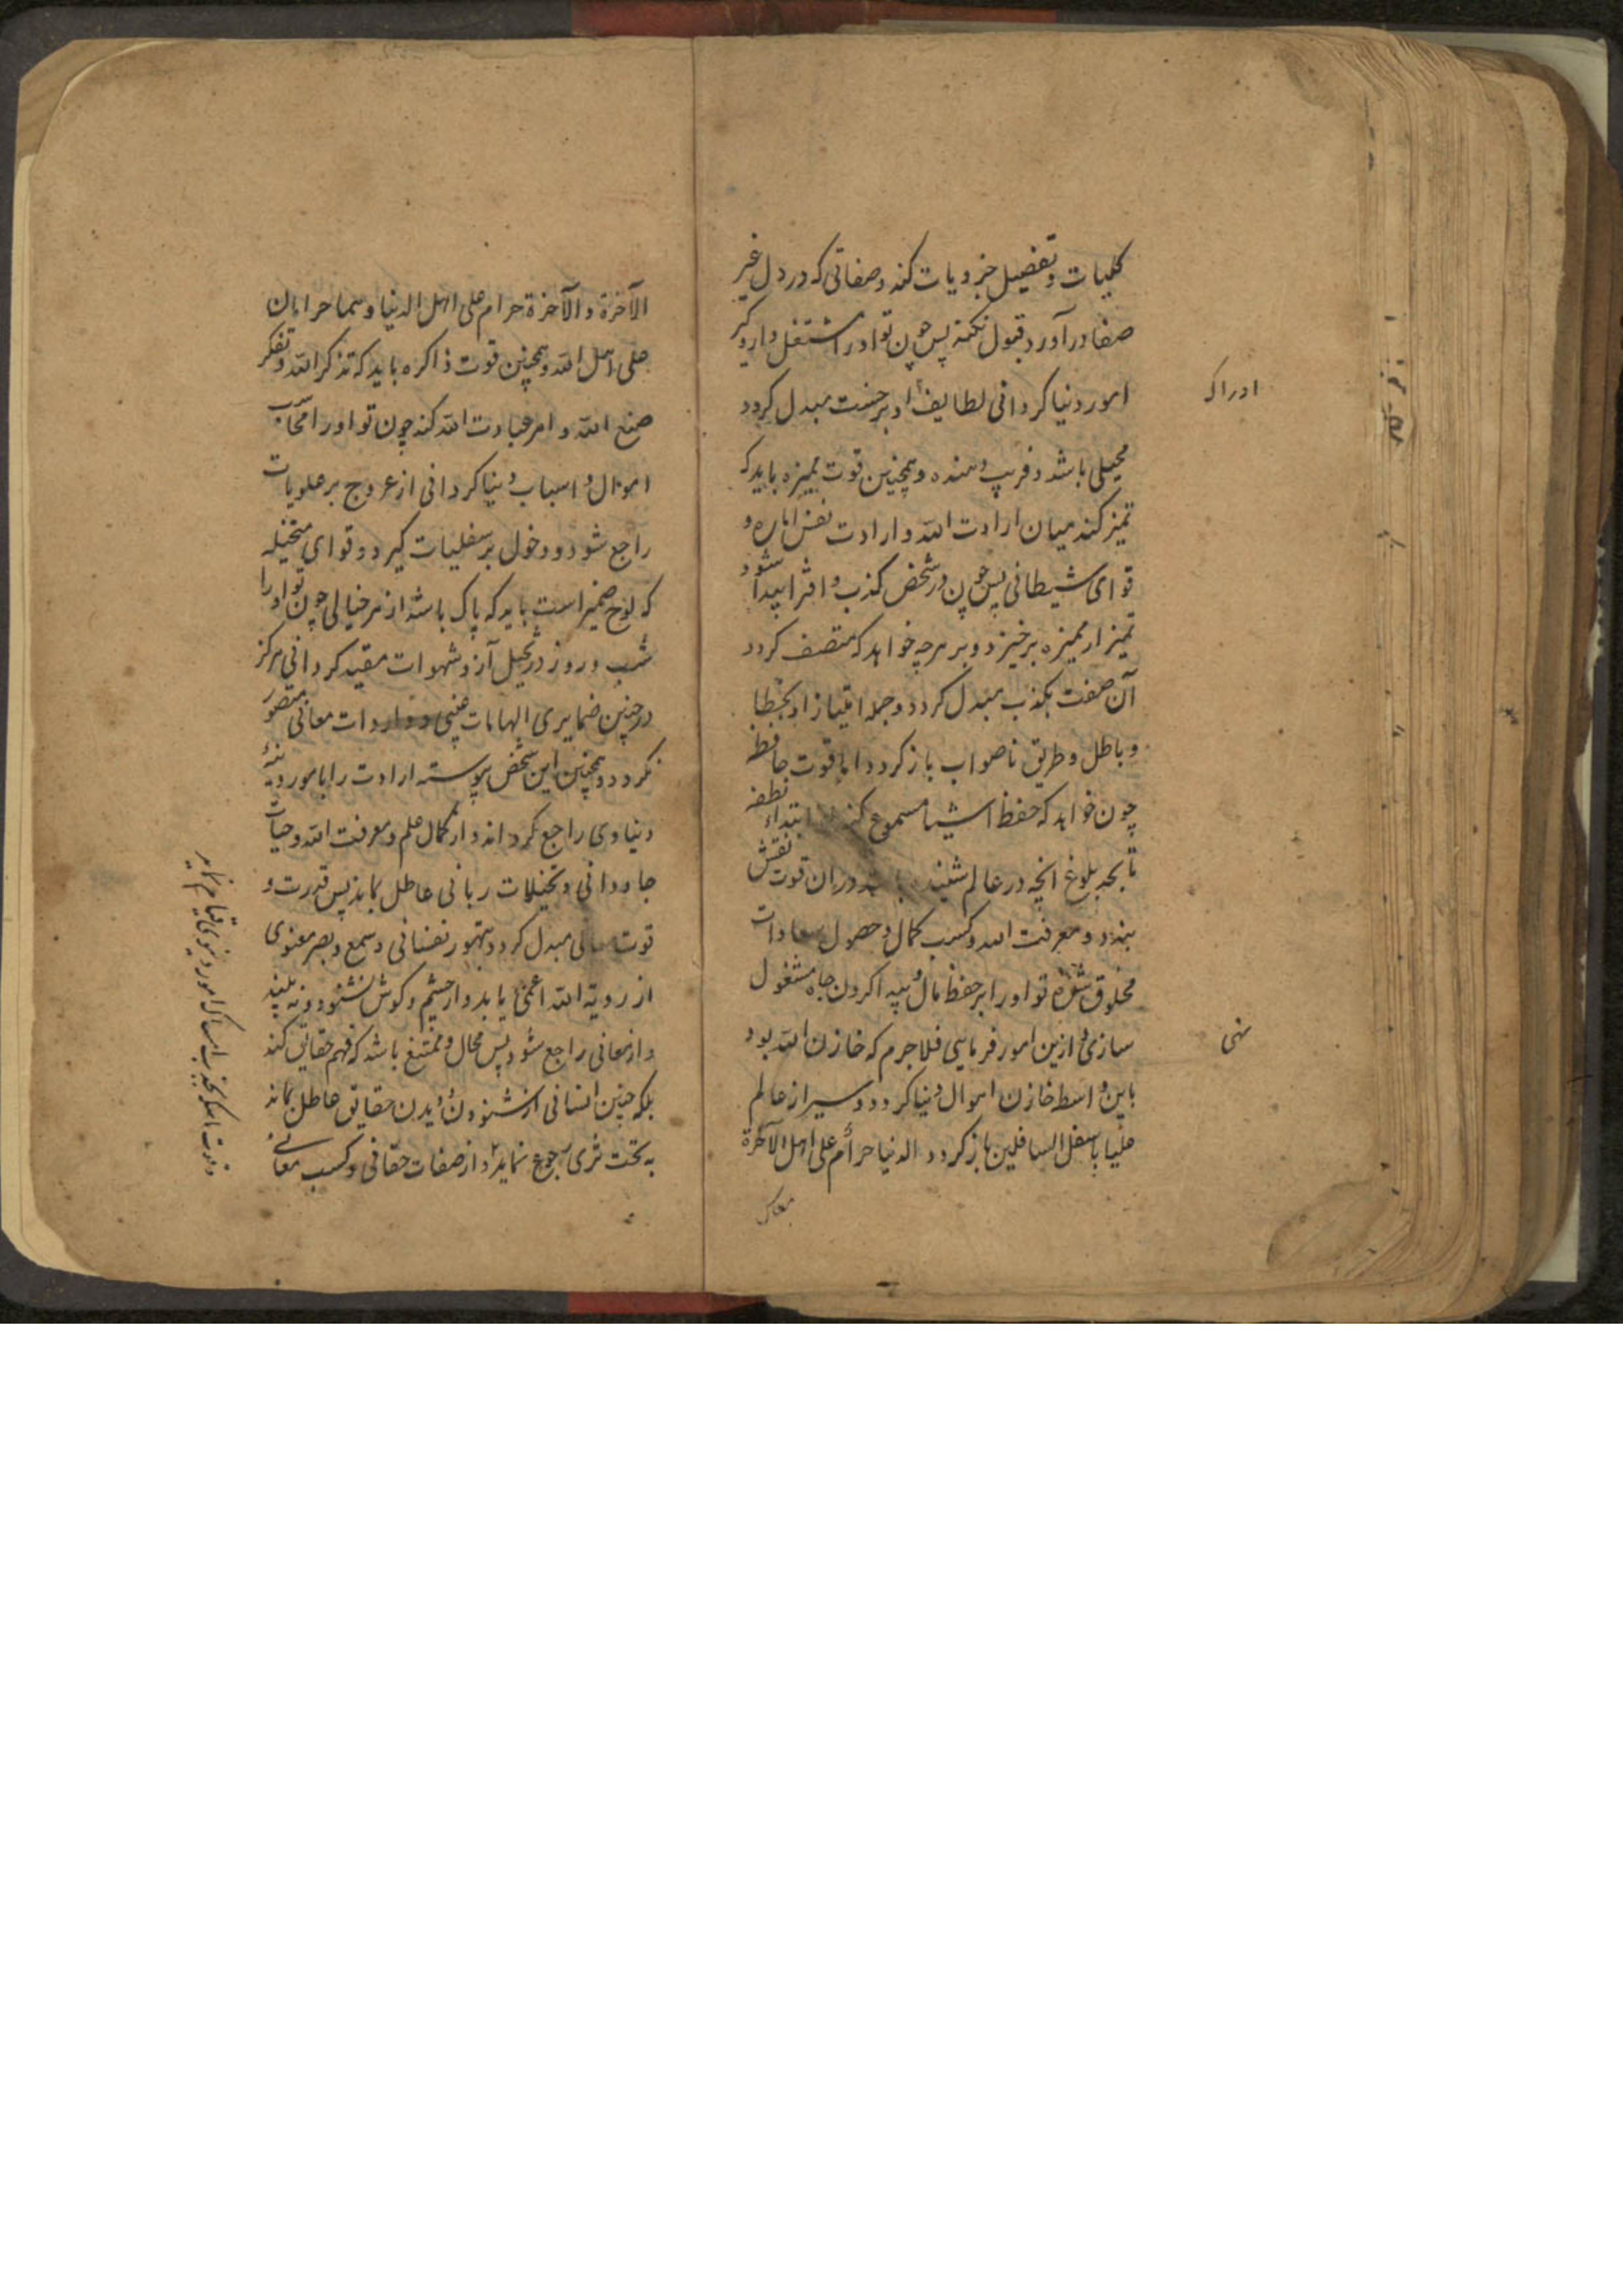 کلیات و تفضیل جزویات کند و صفاتی که در دل غیر
صفا در آورد قبول نکند پس چون تو او را مشتغل داری و گیر
امور دنیا کردانی لطایف او بر خست مبدل کردد
ادراک
محیلی باشد و فریب دهنده و همچنین قوت ممیزه باید که
تمیز کند میان ارادت الله و ارادت نفس اماره و
قوای شیطانی پس چون در شخص کذب و افترا پیدا شود
تمیز از ممیزه برخیزد و بر هرچه خواهد که متصف کردد
آن صفت بکذب مبدل کردد و جمله امتیاز او بخطا
و باطل و طریق ناصواب باز کردد اما قوت حافظه
چون خواهد که حفظ اشیا مسموع کند ابتداء نطفه
تا بحد بلوغ انچه در عالم شنیده باشد در ان قوت نقش
بندد و معرفت الله و کسب کمال و حصول سعادات
مخلوق شده تو او را بر حفظ مال و پیدا کردن جاه مشغول
سازی و ازین امور فرمایی فلاجرم که خازن الله بود
نهی
باین واسط خازن اموال دنیا کردد و سیر از عالم
علیا باسفل السافلین باز کردد الدنیا حرام علی اهل الآخرة
الآخرة و الآخرة حرام علی اهل الدنیا و هما حرامان
علی اهل الله و همچنین قوت ذاکره باید که تذکر الله و تفکر
صنع الله و امر عبادت الله کند چون تو او را
اموال و اسباب دنیا کردانی از عروج بر علویات
راجع شود و دخول بر سفلیات گیرد و قوای متخیله
که لوح ضمیر است باید که پاک باشد از هر خیالی چون تو او را
شب و روز در تخیل آز و شهوات مقید کردانی هرکز
در چنین ضمایری الهامات غیبی و واردات معانی متصور
نکردد و همچنین این شخص پیوسته ارادت را بامور دنیه
دنیاوی راجع کرداند و از کمال علم و معرفت الله و حیات
جاودانی و تخیلات ربانی عاطل بماند پس قدرت و
قوت معانی مبدل کردد بتهور نفسانی و سمع و بصر معنوی
از رویة الله اعمی یابد و از چشم و کوش نشنود و نه بیند
و از معانی راجع شود پس محال و ممتنع باشد که فهم حقایق کند
بلکه چنین انسانی از شنودن و دیدن حقایق عاطل بماند
به تحت ثری رجوع نماید و از صفات حقانی و کسب معانی